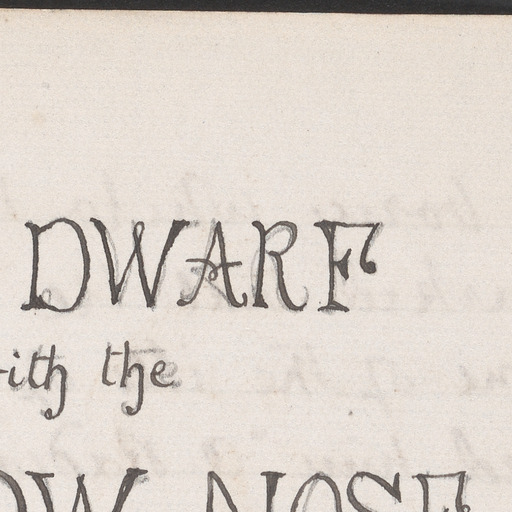 DWARF
with the
OW NOSE